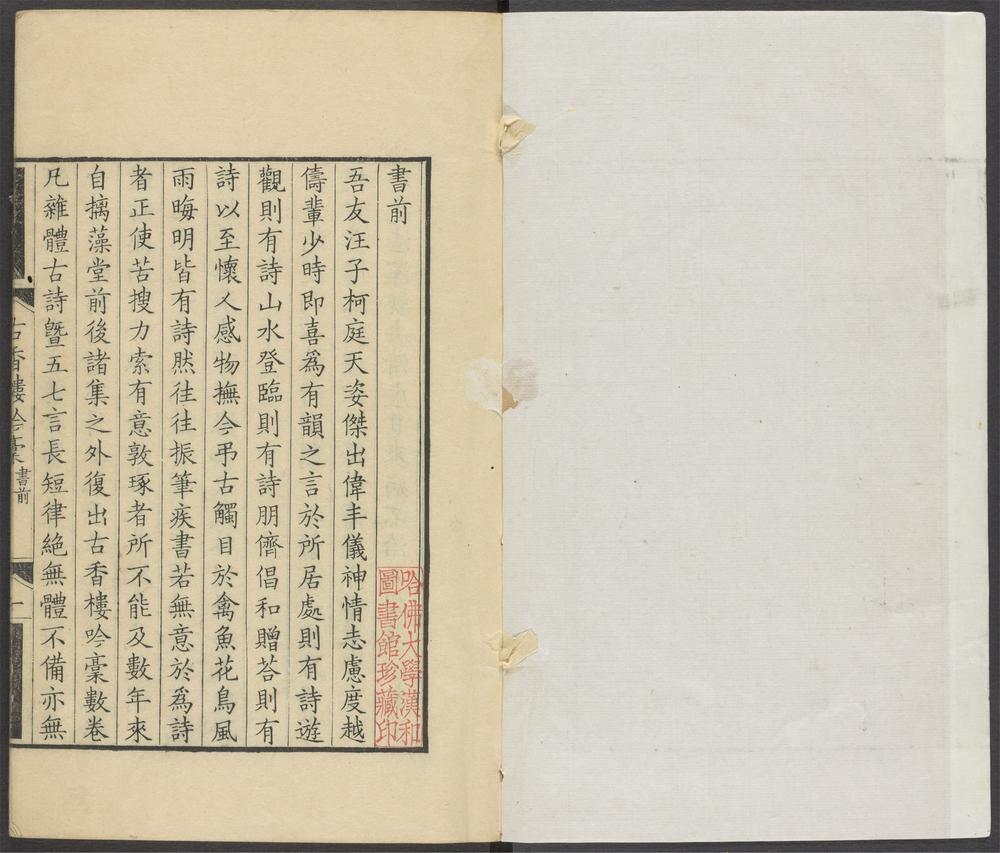 書前
吾友汪子柯庭天姿傑出偉丰儀神情志慮度越
儔輩少時即喜爲有韻之言於所居處則有詩遊
觀則有詩山水登臨則有詩朋儕倡和贈荅則有
詩以至懷人感物撫今弔古觸目於禽魚花鳥風
雨晦明皆有詩然往往振筆疾書若無意於爲詩
者正使苦搜力索有意敦琢者所不能及數年來
自摛藻堂前後諸集之外復出古香樓吟藁數卷
凡雜體古詩曁五七言長短律絶無體不備亦無
古香樓吟藁
書前
一
哈佛大學漢和
圖書館珍藏印